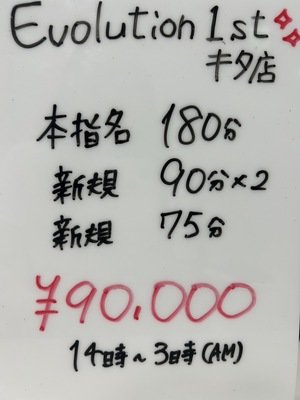 Evolution 1st
キタ店
本指名 180分
新規 90分×2
新規 75分
¥90.000
14時~3時(AM)